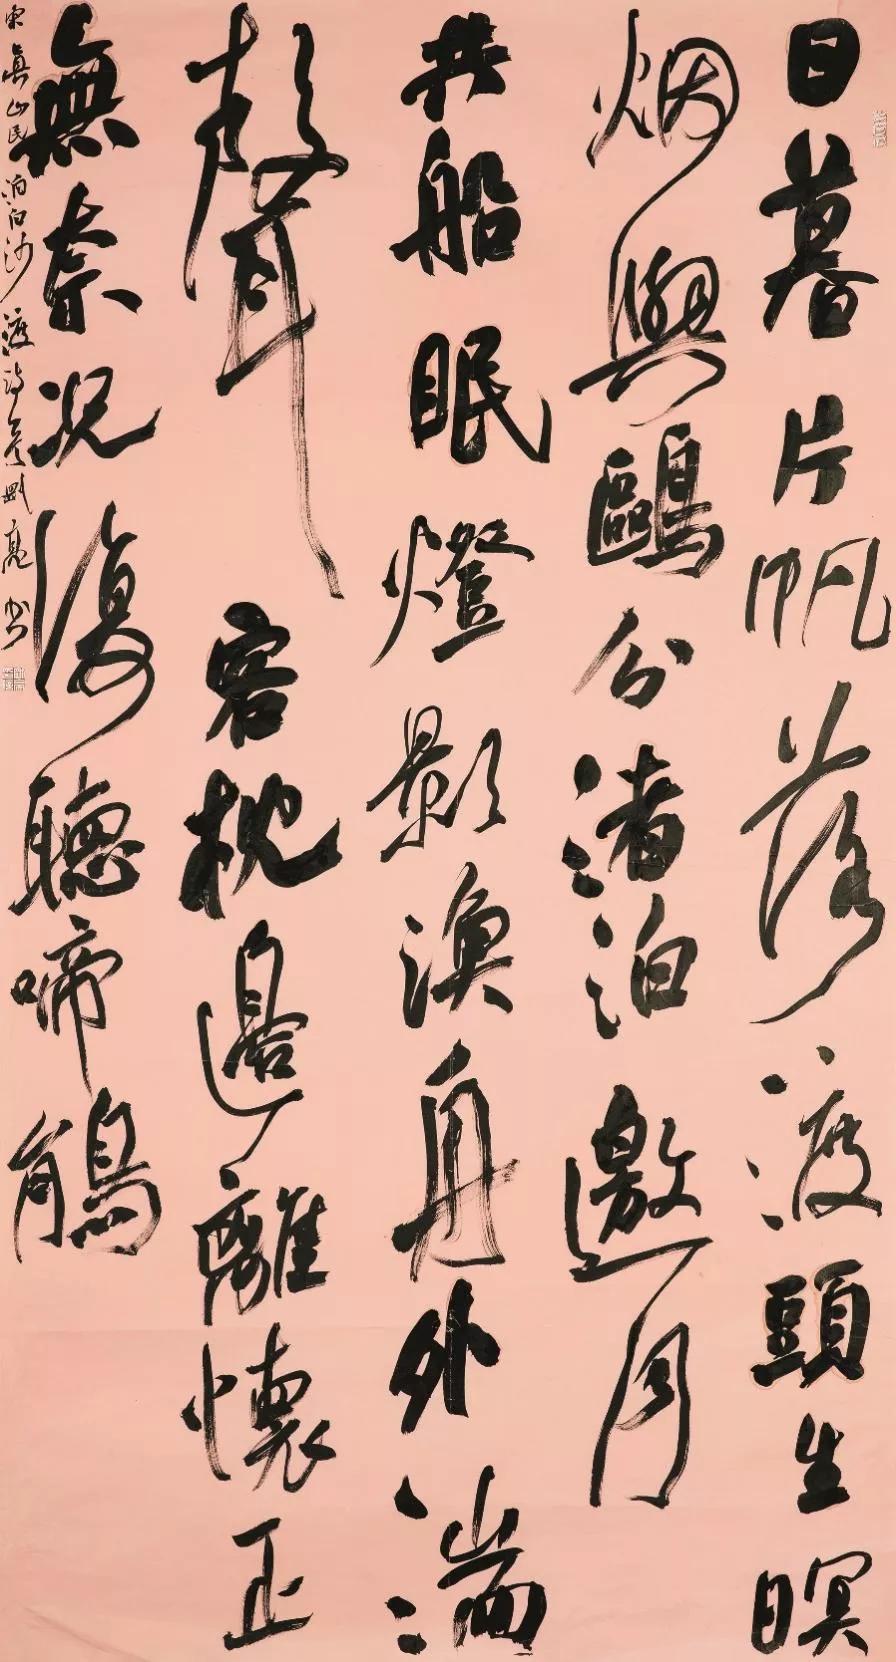 日暮片帆落渡頭生暝
烟與鷗分渚泊邀月
共船眠燈影漁舟外湍
聲客枕邊離懷正
無奈況復聽啼鵑
宋真山民泊白沙渡詩